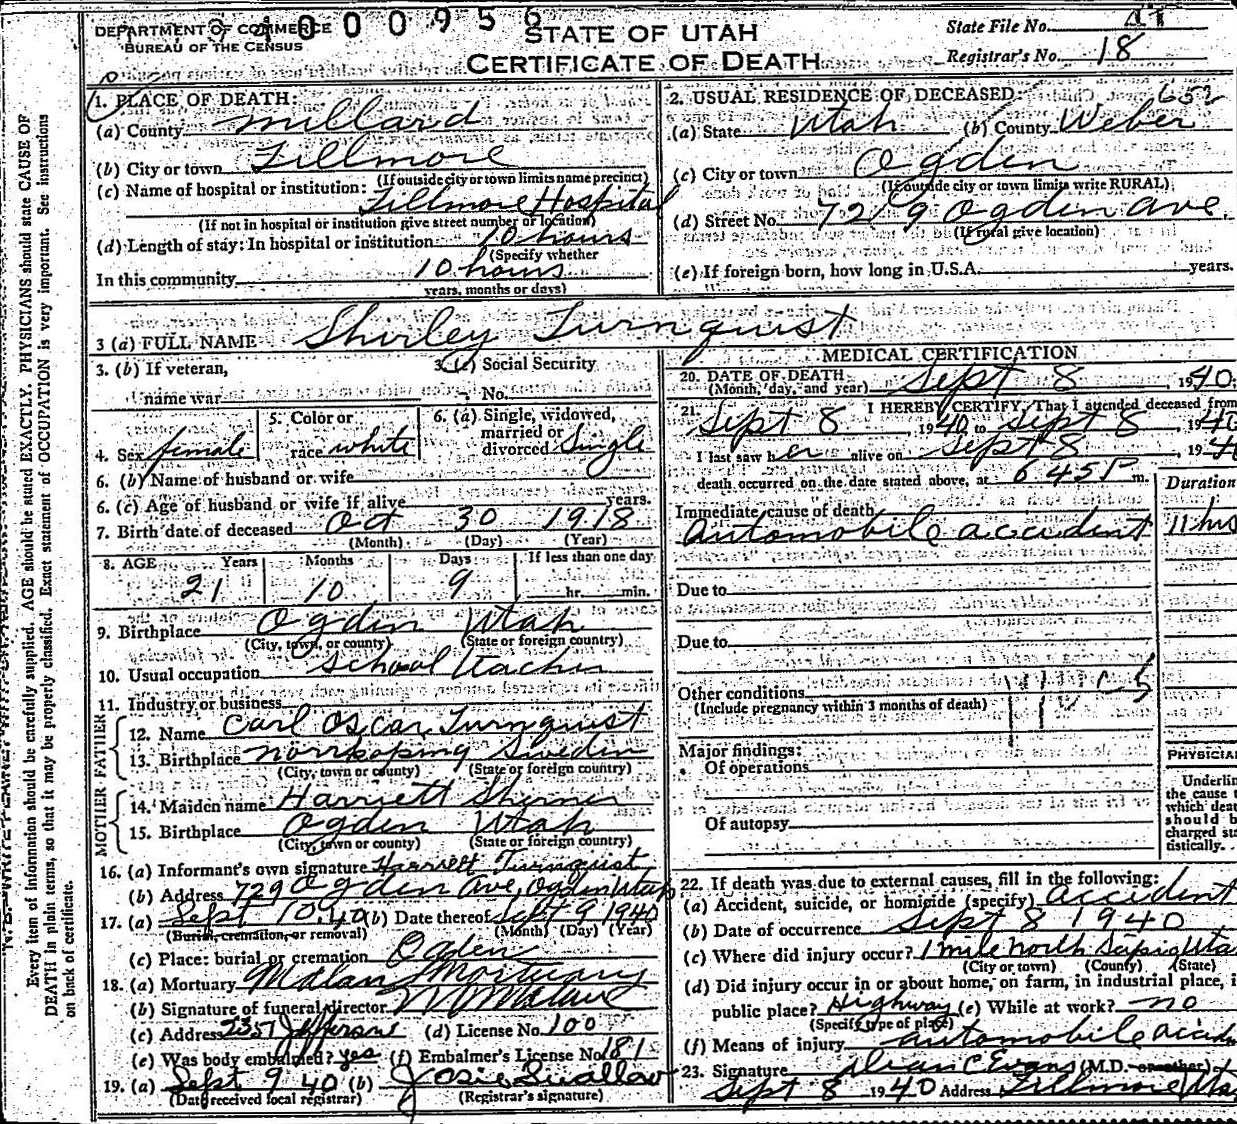 000956
DEPARTMENT OF COMMERCE
BUREAU OF THE CENSUS
STATE OF UTAH
CERTIFICATE OF DEATH
State File No.
Registrar's No. 18
1. PLACE OF DEATH:
(a) County Millard
(b) City or town Fillmore
(If outside city or town limits name precinct)
(c) Name of hospital or institution:
Fillmore Hospital
(If not in hospital or institution give street number or location)
(d) Length of stay: In hospital or institution 10 hours
(Specify whether
In this community 10 hours
years, months or days)
2. USUAL RESIDENCE OF DECEASED: 652
(a) State Utah (b) County Weber
(c) City or town Ogden
(If outside city or town limits write RURAL)
(d) Street No. 729 Ogden Ave.
(If rural give location)
(e) If foreign born, how long in U.S.A. years.
3 (a) FULL NAME Shirley Turnquist
3. (b) If veteran,
name war
3. (c) Social Security
No.
4. Sex female
5. Color or
race white
6. (a) Single, widowed,
married or
divorced Single
6. (b) Name of husband or wife
6. (c) Age of husband or wife if alive years.
7. Birth date of deceased Oct 30 1918
(Month) (Day) (Year)
8. AGE Years Months Days If less than one day
21 10 9 hr. min.
9. Birthplace Ogden Utah
(City, town, or county) (State or foreign country)
10. Usual occupation School teacher
11. Industry or business
FATHER
12. Name Carl Oscar Turnquist
13. Birthplace Norrkoping Sweden
(City, town or county) (State or foreign country)
MOTHER
14. Maiden name Harriett
15. Birthplace Ogden Utah
(City, town or county) (State or foreign country)
16. (a) Informant's own signature Harriett Turnquist
(b) Address 729 Ogden Ave, Ogden Utah
17. (a) Sept 10, 40 (b) Date thereof Sept 9 1940
(Burial, cremation, or removal) (Month) (Day) (Year)
(c) Place: burial or cremation Ogden
18. (a) Mortuary Malan Mortuary
(b) Signature of funeral director Malan
(c) Address 2351 Jefferson (d) License No. 100
(e) Was body embalmed? yes (f) Embalmer's License No. 181
19. (a) Sept 9 40 (b) Josie Swallow
(Date received local registrar) (Registrar's signature)
MEDICAL CERTIFICATION
20. DATE OF DEATH
(Month, day, and year) Sept 8, 1940.
21. I HEREBY CERTIFY, That I attended deceased from
Sept 8 1940 to Sept 8, 1940
I last saw her alive on Sept 8, 194
death occurred on the date stated above, at 6 45 P m.
Duration
Immediate cause of death
Automobile accident 11 hrs
Due to
Due to
Other conditions
(Include pregnancy within 3 months of death)
Major findings:
Of operations
Of autopsy
PHYSICIA
Underlin
the cause t
which deat
should b
charged sta
tistically.
22. If death was due to external causes, fill in the following:
(a) Accident, suicide, or homicide (specify) Accident
(b) Date of occurrence Sept 8 1940
(c) Where did injury occur? 1 mile North Scipio Uta
(City or town) (County) (State)
(d) Did injury occur in or about home, on farm, in industrial place, i
public place? Highway (e) While at work? no
(Specify type of place)
(f) Means of injury automobile accid
23. Signature Evans (M.D. or other)
Sept 8 1940 Address Fillmore Uta
Every item of information should be carefully supplied. AGE should be stated EXACTLY. PHYSICIANS should state CAUSE OF
DEATH in plain terms, so that it may be properly classified. Exact statement of OCCUPATION is very important. See instructions
on back of certificate.